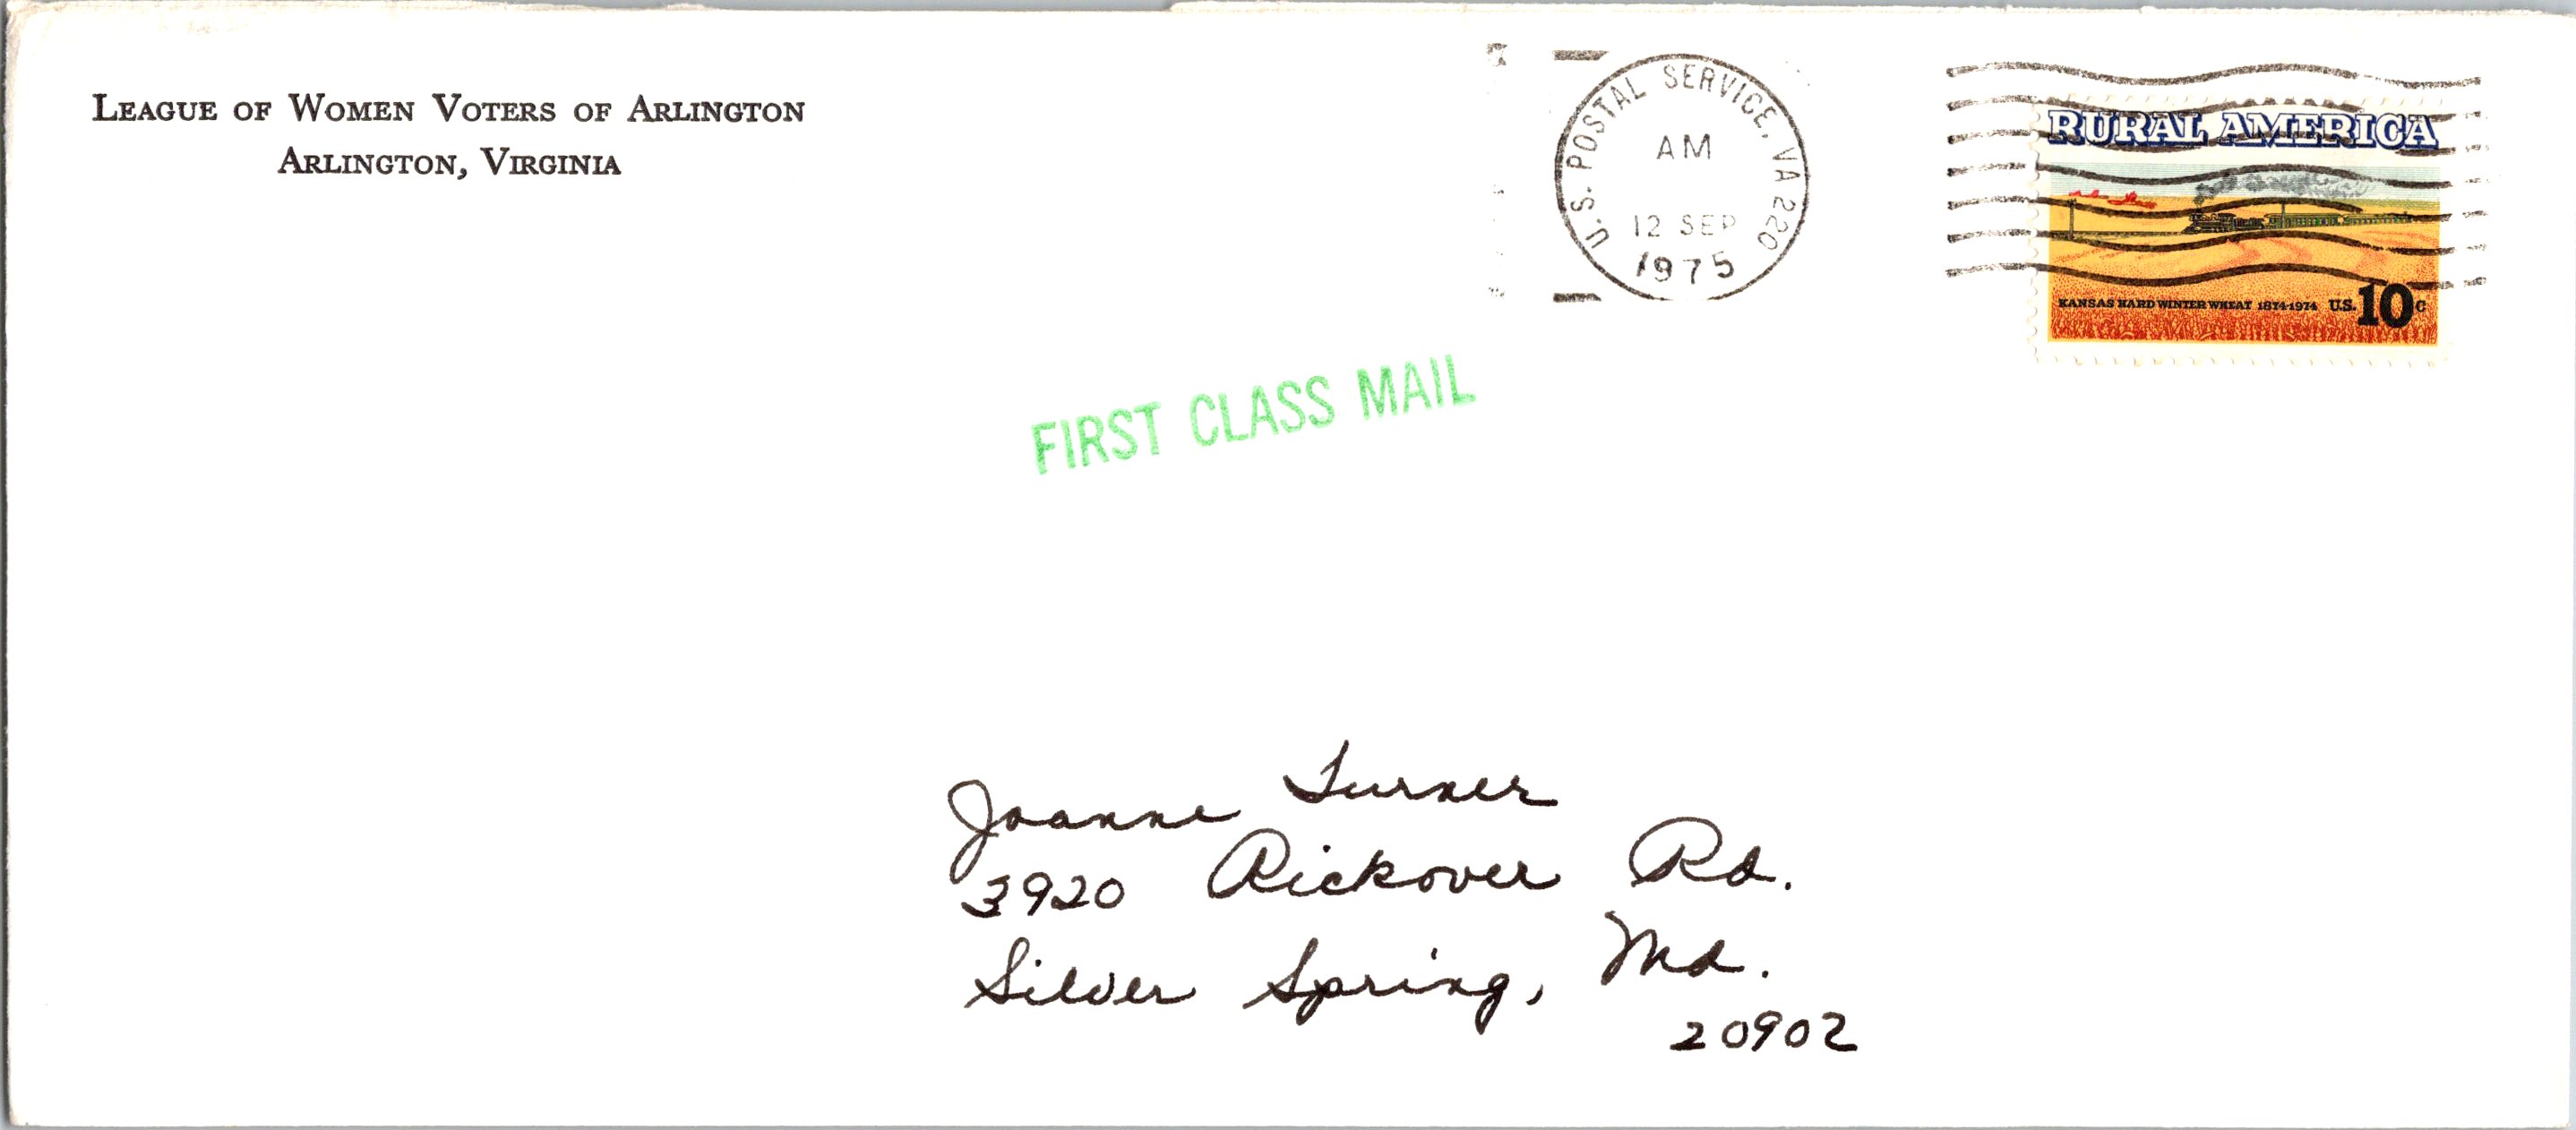 LEAGUE OF WOMEN VOTERS OF ARLINGTON
ARLINGTON, VIRGINIA
U.S. POSTAL SERVICE, VA 220
AM
12 SEP
1975
RURAL AMERICA
KANSAS HARD WINTER WHEAT 1874-1974 U.S. 10c
FIRST CLASS MAIL
Joanne Turner
3920 Rickover Rd.
Silver Spring, Md.
20902